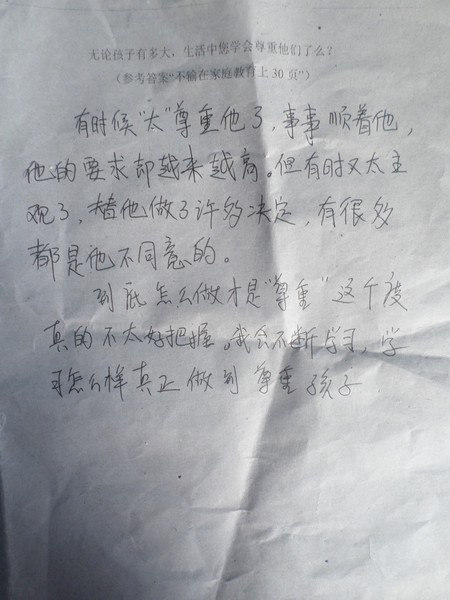 无论孩子有多大，生活中您学会尊重他们了么？
（参考答案“不输在家庭教育上30页”）
有时候“太”尊重他了，事事顺着他，
他的要求却越来越高。但有时又太主
观了，替他做了许多决定，有很多
都是他不同意的。
到底怎么做才是“尊重”这个度
真的不太好把握。我会不断学习，学
习怎么样真正做到尊重孩子